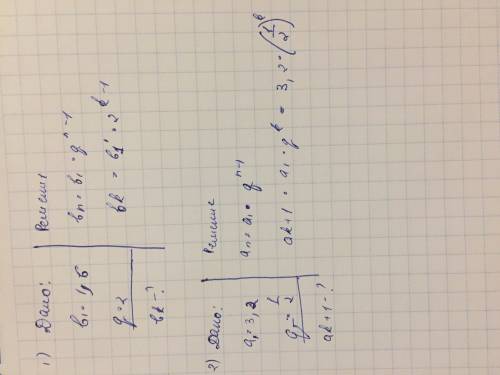 1) Дано:
b₁ = 1,5
q = 2
bk - ?
Решение
bn = b₁ · q^n-1
bk = b₁ · 2^k-1
2) Дано:
a₁ = 3,2
q = 1/2
ak+1 - ?
Решение
an = a₁ · q^n-1
ak+1 = a₁ · q^k = 3,2 · (1/2)^k